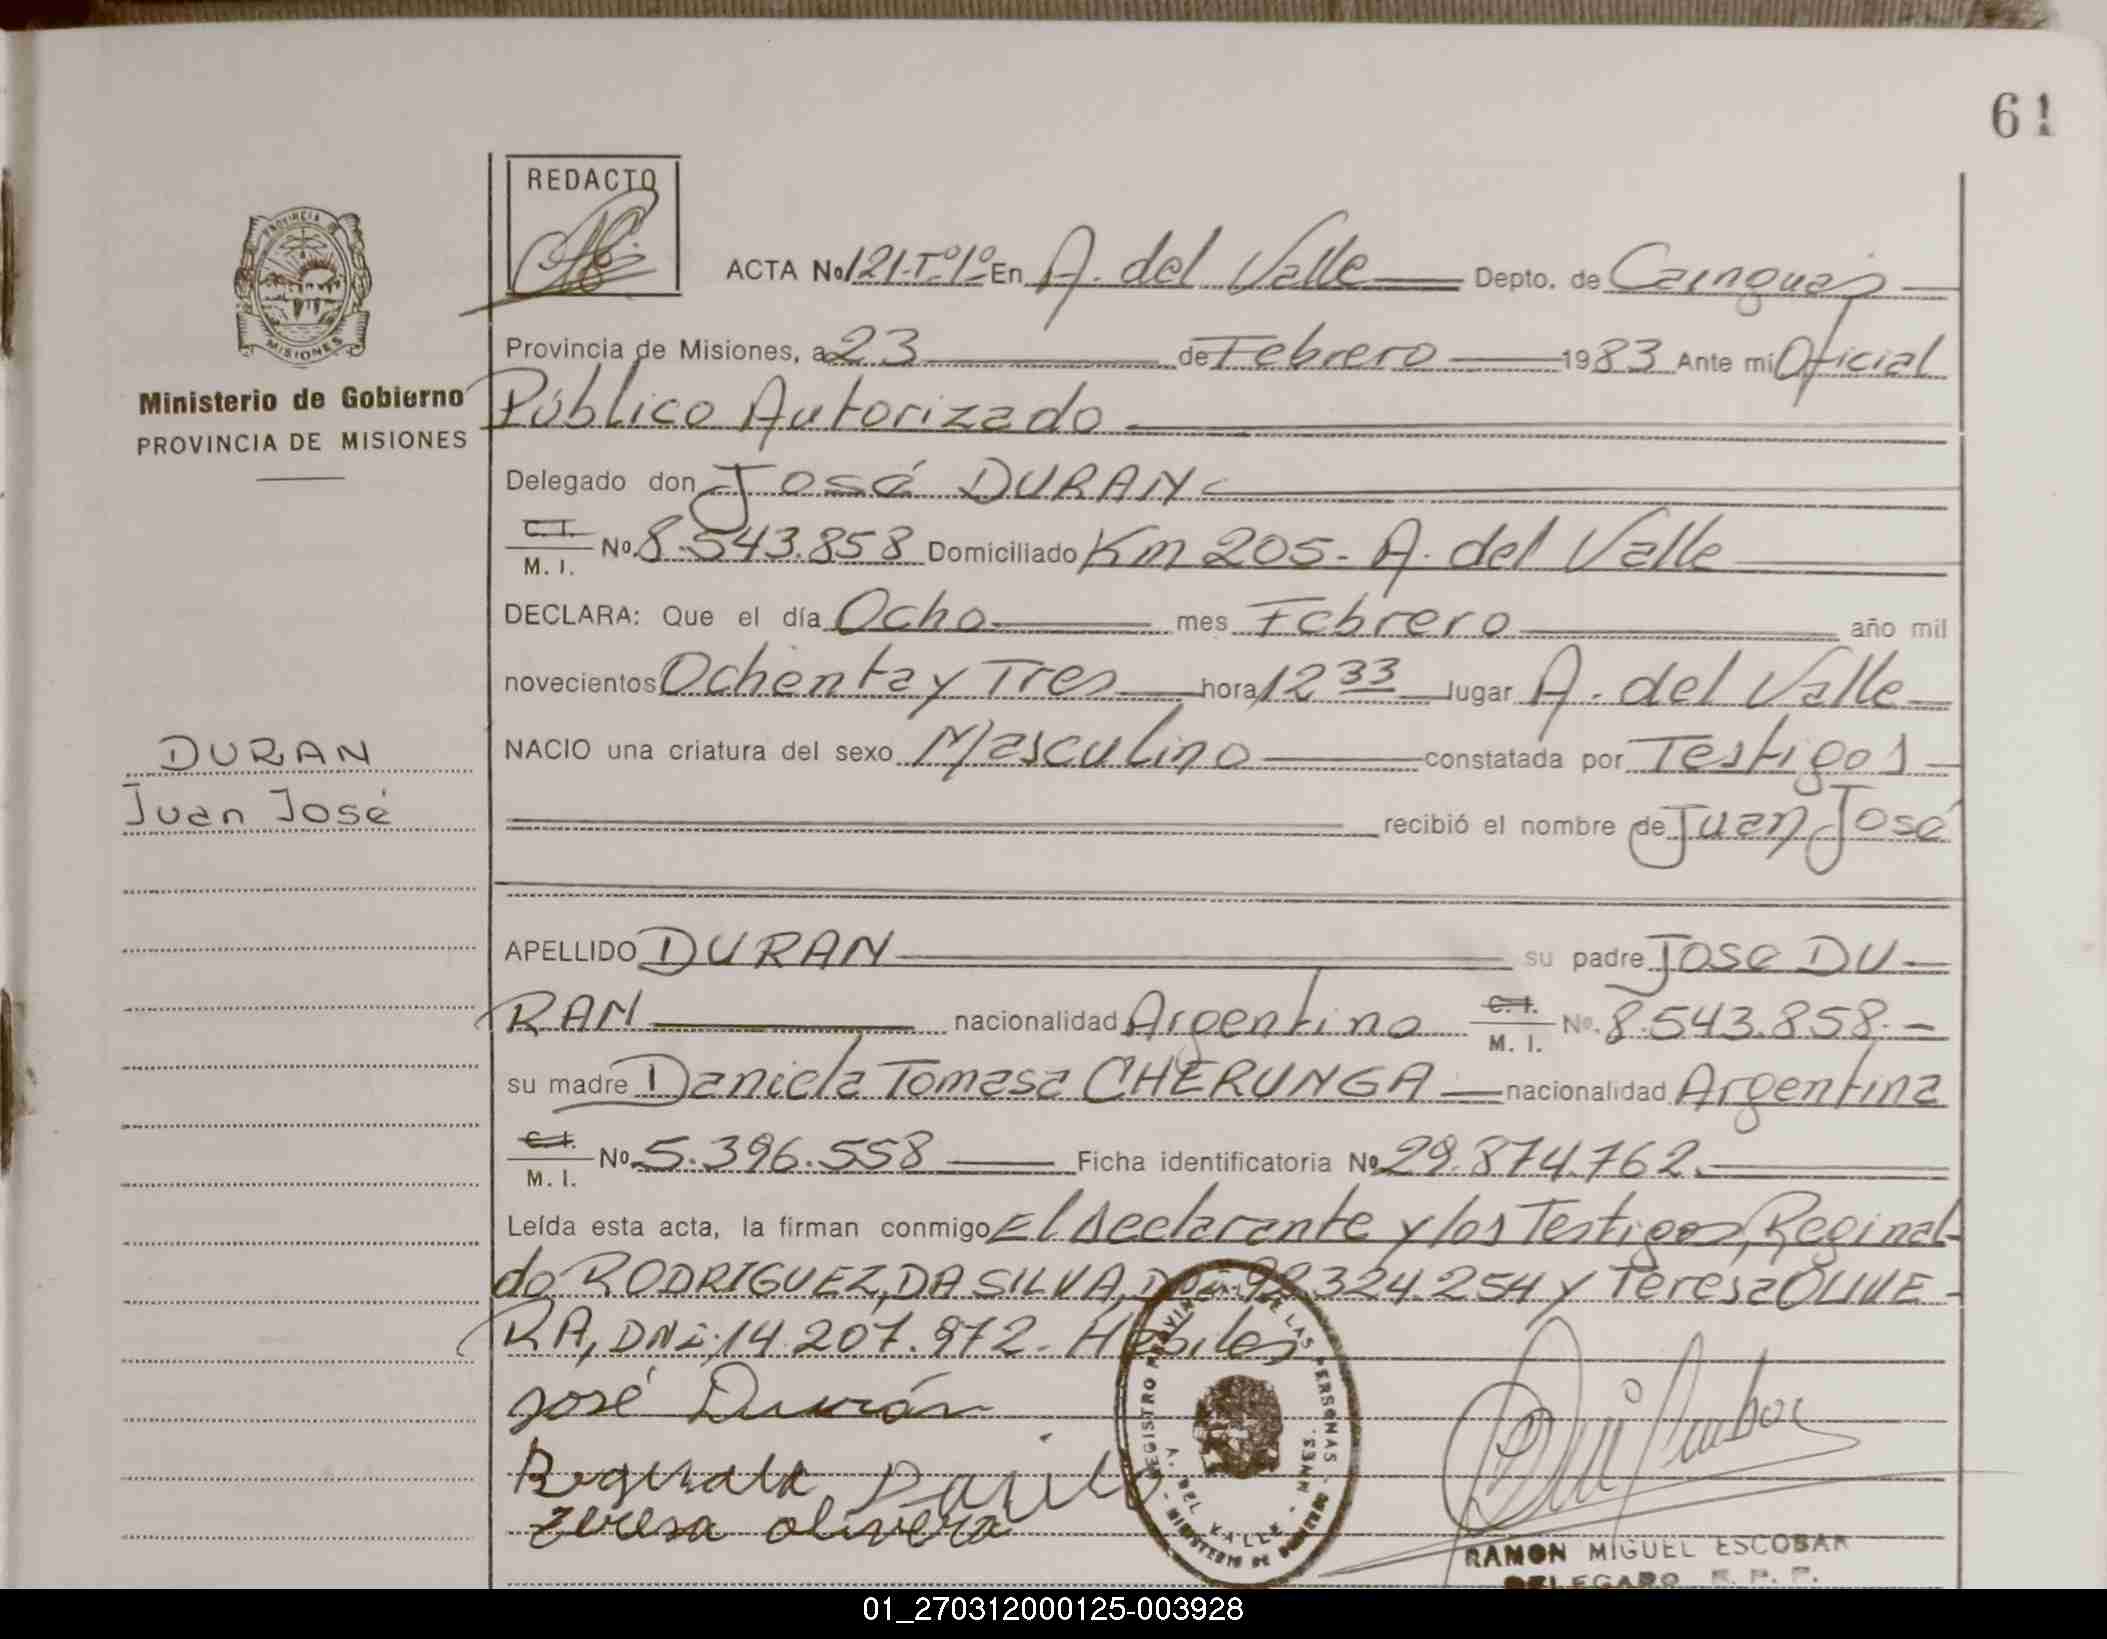 61
REDACTO
PROVINCIA
MISIONES
Ministerio de Gobierno
PROVINCIA DE MISIONES
ACTA No 121-Tº1º En A. del Valle Depto. de Cainguás
Provincia de Misiones, a 23 de Febrero 1983 Ante mí Oficial
Público Autorizado
Delegado don José DURAN
C.I. M. I. No. 8.543.858 Domiciliado Km 205- A. del Valle
DECLARA: Que el día Ocho mes Febrero año mil
novecientos Ochenta y Tres hora 12 33 lugar A. del Valle
NACIO una criatura del sexo Masculino constatada por Testigos
recibió el nombre de Juan José
DURAN
Juan José
APELLIDO DURAN su padre José DU-
RAN nacionalidad Argentino C.I. M. I. No. 8.543.858.-
su madre Daniela Tomasa CHERUNGA nacionalidad Argentina
C.I. M. I. No 5.396.558 Ficha identificatoria No 29.874.762.
Leída esta acta, la firman conmigo El declarante y los Testigos, Reginal-
do RODRIGUEZ, DA SILVA, DNI: 92.324.254 y Teresa OLIVE-
RA, DNI: 14.207.972- Hábiles
José Durán
Teresa olivera
REGISTRO PROVINCIAL DE LAS PERSONAS
A. DEL VALLE - MNES.
MINISTERIO DE GOBIERNO
RAMON MIGUEL ESCOBAR
DELEGADO R. P. P.
01_270312000125-003928